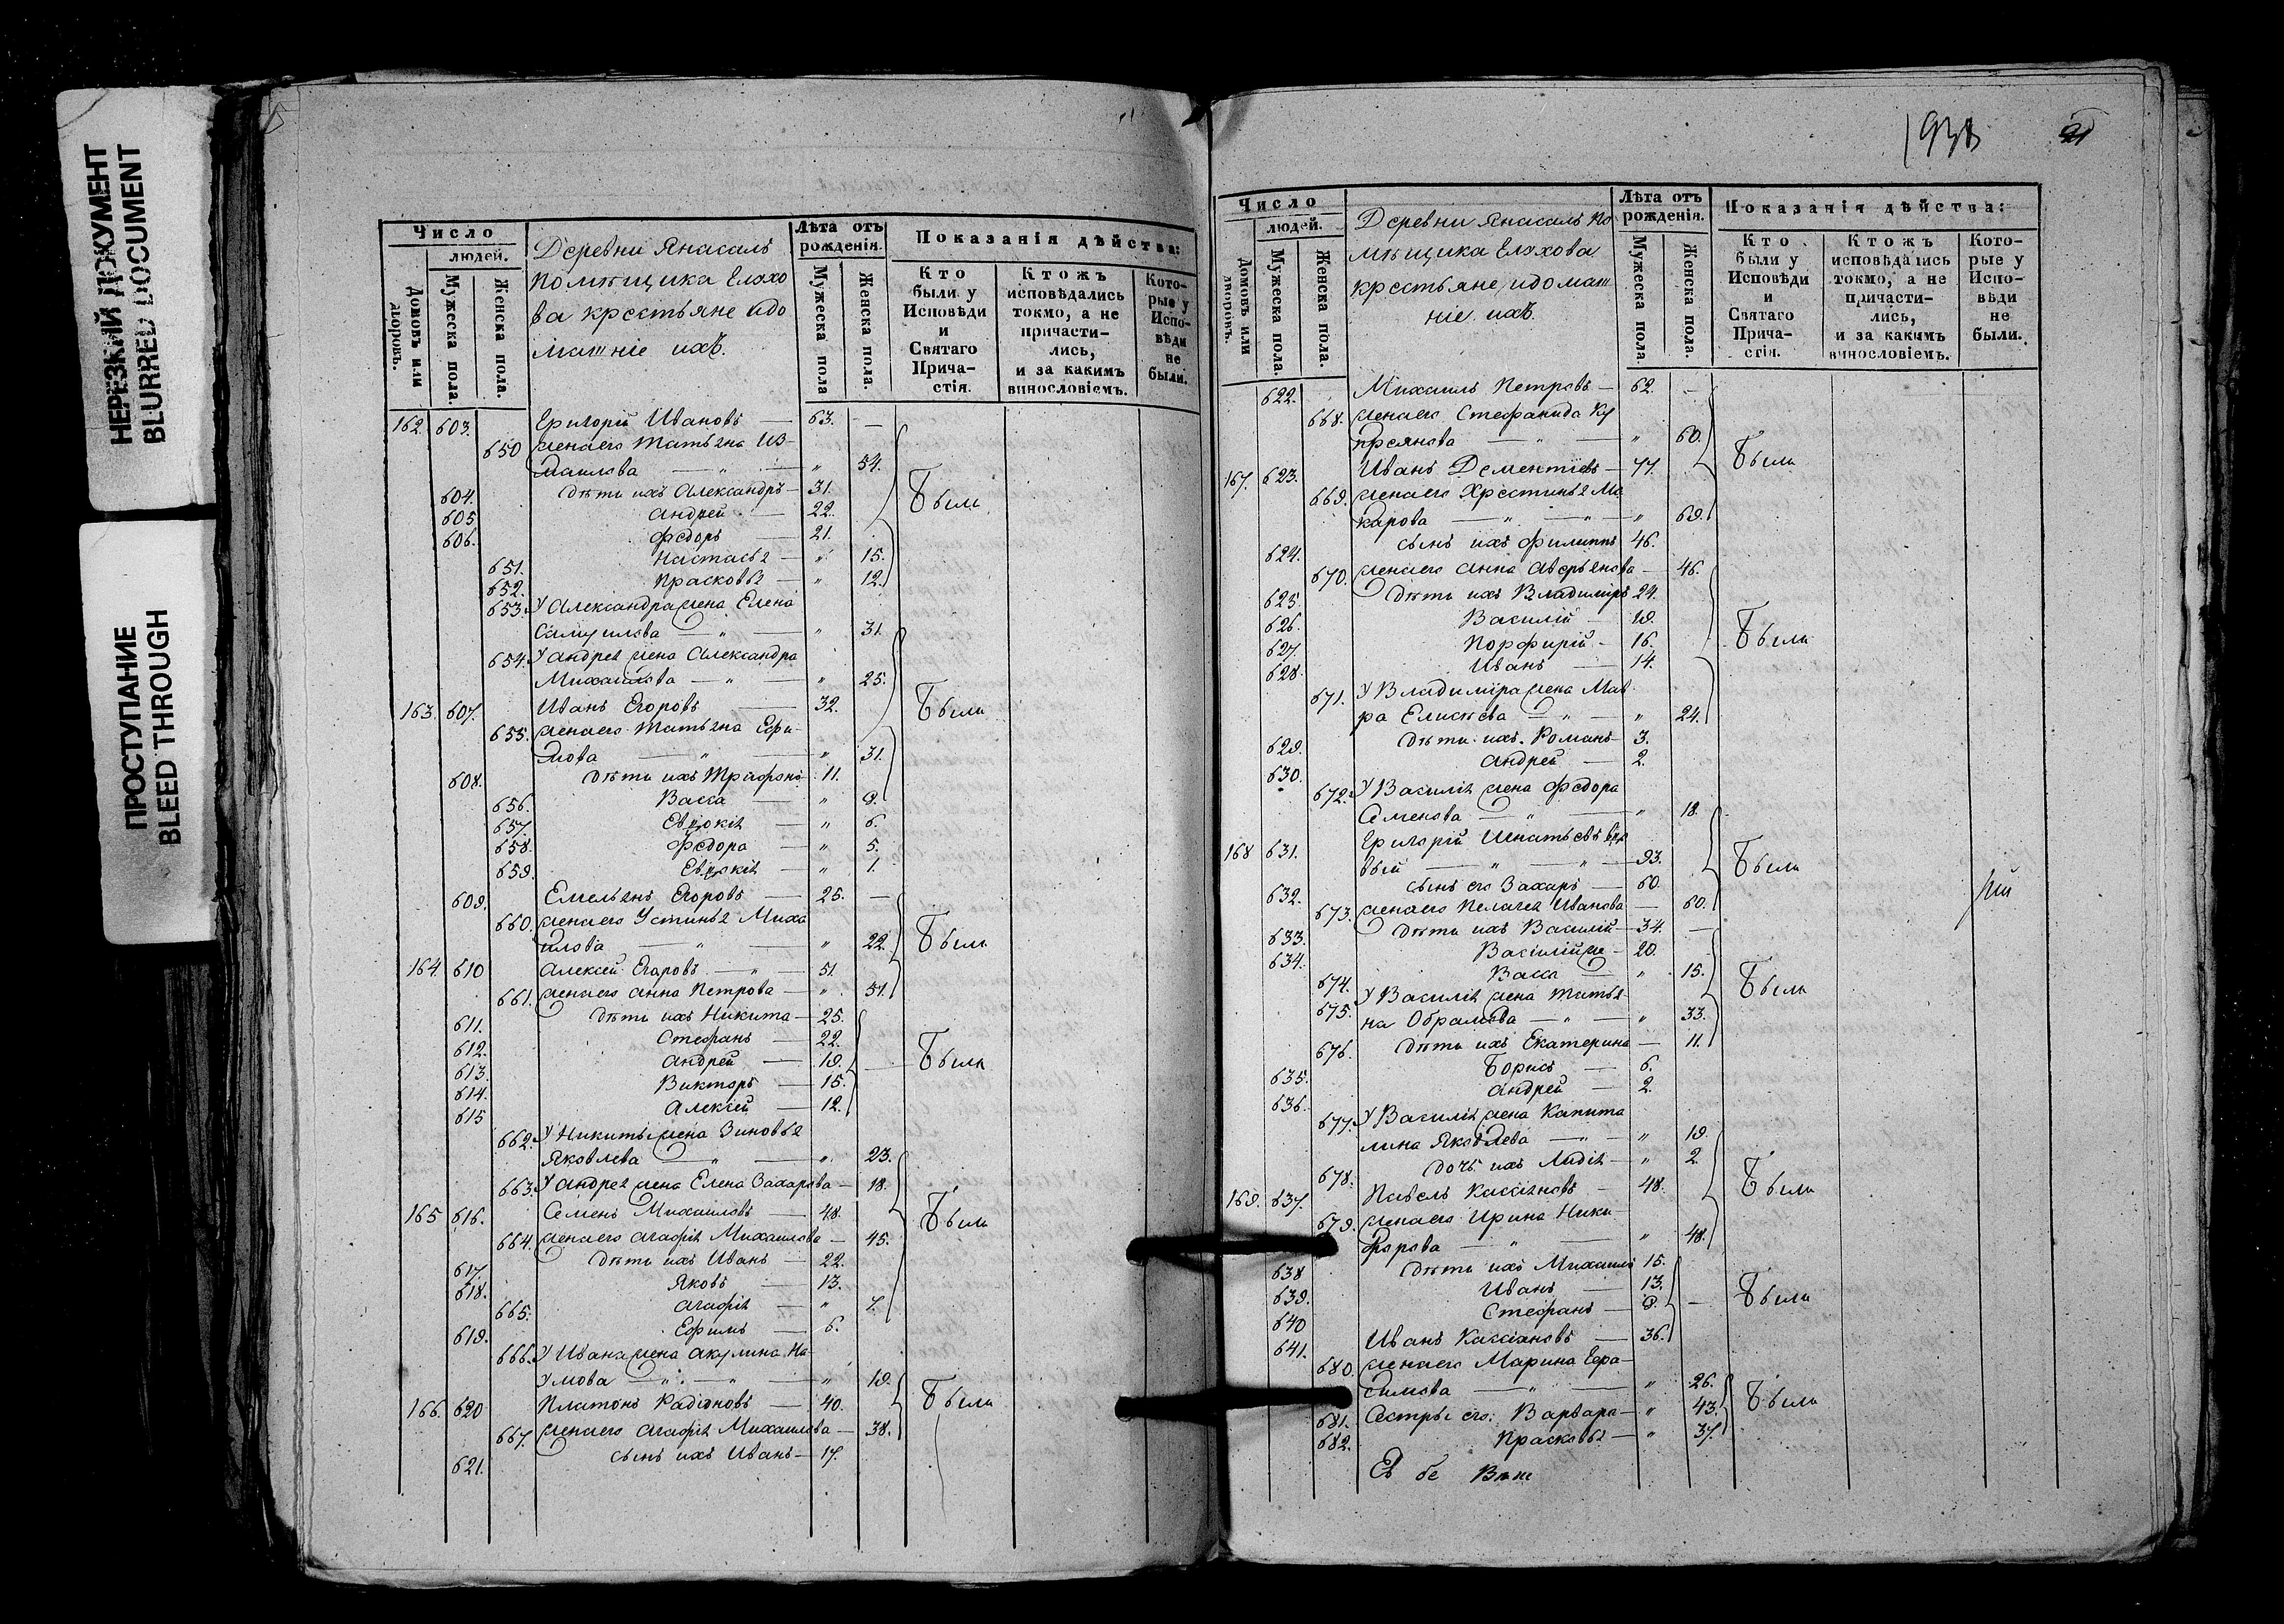 НЕРЕЗКИЙ ДОКУМЕНТ
BLURRED DOCUMENT
ПРОСТУПАНИЕ
BLEED THROUGH
Число
людей.
Домовъ или дворовъ.
Мужеска пола.
Женска пола.
Деревни Янасалъ
помѣщика Елахо
ва крестьяне идо
машніе ихъ.
Лѣта отъ рожденія.
Мужеска пола
Женска пола.
Показанія дѣйства:
Кто были у Исповѣди и Святаго Причастія.
Ктожъ исповѣдались токмо, а не причастились, и за какимъ винословіемъ.
Которые у Исповѣди не были.
162. 603. Григорій Ивановъ — 63. —
650 женаего Татьяна Из-
маилова — " — " 54.
604. Дѣти ихъ Александръ — 31. Были
605 Андрей — 22.
606. Ѳедоръ — 21.
651. Настасья — " 15.
652. Прасковья — " 12.
653. У Александра жена Елена
Самуилова — " — " 31.
654. У Андрея жена Александра
Михайлова — " — " 25.
163. 607. Иванъ Егоровъ — 32. Были
655. женаего Татьяна Ефи-
мова — " — " 31.
608. Дѣти ихъ Трифонъ 11.
656. Васса — " 9.
657. Евдокія — " 6.
658. Ѳедора — " 5.
659. Евдокія — " 1.
609. Емельянъ Егоровъ — 25. —
660. женаего Устинья Миха
илова — " — " 22. Были
164. 610 Алексей Егоровъ — " — 51.
661. женаего Анна Петрова — " 51.
611. Дѣти ихъ Никита — 25.
612. Стефанъ — 22.
613. Андрей — 19. Были
614. Викторъ — 15.
615 Алексѣй — 12.
662. У Никиты жена Зиновья
Яковлева — " — " 23.
663. У Андрея жена Елена Захарова — 18.
165 616. Семенъ Михаиловъ — 48. Были
664. женаего Агафія Михаилова — 45.
617. Дѣти ихъ Иванъ — 22.
618. Яковъ — 13.
665. Агафія — " 7.
619. Ефимъ — 6.
666. У Ивана жена Акулина На-
умова — " — " — " 19.
166. 620 Платонъ Радіоновъ — 40. Были
667. женаего Агафія Михаилова — 38.
621. сынъ ихъ Иванъ — 17.
Число
людей.
Домовъ или дворовъ.
Мужеска пола.
Женска пола.
Деревни Янасалъ по
мѣщика Елахова
крестьяне, идомаш
ніе ихъ.
Лѣта отъ рожденія.
Мужеска пола.
Женска пола.
Показанія дѣйства:
Кто были у Исповѣди и Святаго Причастія.
Ктожъ исповѣдались токмо, а не причастились, и за какимъ винословіемъ.
Которые у Исповѣди не были.
622. Михаилъ Петровъ — 62. —
668. женаего Стефанида Ку
преянова — " — " 60. Были
167. 623. Иванъ Дементіевъ — 77.
669. женаего Христинья Ма
карова — " — " — " 69.
624. сынъ ихъ Филиппъ 46.
670. женаего Анна Аверьянова — 46.
625. Дѣти ихъ Владиміръ 24.
626. Василій — 19.
627. Порфирій — 16. Были
628. Иванъ — 14.
671. У Владиміра жена Мав
ра Елисѣева — " — " 24.
629. Дѣти ихъ Романъ — 3.
630. Андрей — 2.
672. У Василія жена Ѳедора
Семенова — " — " 18.
168 631. Григорій Игнатьевъ вдо
вый — " — " — 93. Были
632. сынъ его Захаръ — 60.
673. женаего Пелагея Иванова — 60.
633. Дѣти ихъ Василій — 34. —
634. Василійже — 20.
674. Васса — " 15. Были
675. У Василія жена Татья-
на Обрамова — " — " 33.
676. Дѣти ихъ Екатерина — 11.
635. Борисъ — 6.
636. Андрей — 2.
677. У Василія жена Капито
лина Яковлева — " — " 19.
678. дочь ихъ Лидія — " 2. Были
169. 637. Павелъ Кассіановъ — 48.
679. женаего Ирина Ники-
форова — " — " 48.
638 Дѣти ихъ Михаилъ 15.
639. Иванъ — 13. Были
640 Стефанъ — 9. —
641. Иванъ Кассіановъ — 36.
680. женаего Марина Гера-
симова — " — " 26.
681. Сестры его: Варвара — " 43. Были
682. Прасковья — " 37.